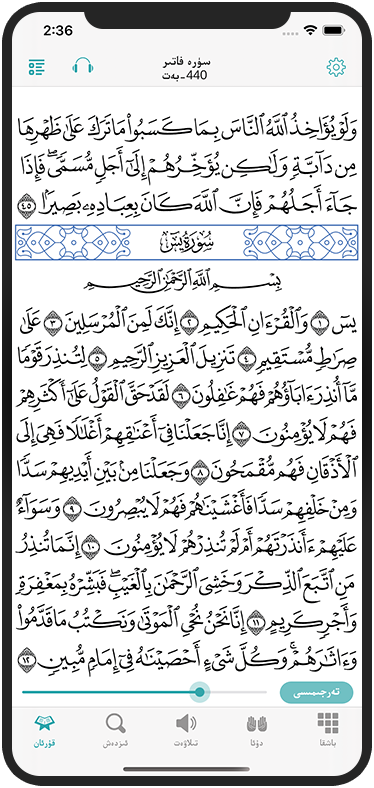 2:36
سۈرە فاتىر
440-بەت
وَلَوْ يُؤَاخِذُ ٱللَّهُ ٱلنَّاسَ بِمَا كَسَبُوا۟ مَا تَرَكَ عَلَىٰ ظَهْرِهَا
مِن دَآبَّةٍ وَلَـٰكِن يُؤَخِّرُهُمْ إِلَىٰٓ أَجَلٍ مُّسَمًّى ۖ فَإِذَا
جَآءَ أَجَلُهُمْ فَإِنَّ ٱللَّهَ كَانَ بِعِبَادِهِۦ بَصِيرًۢا ٤٥
سُورَةُ يسٓ
بِسْمِ ٱللَّهِ ٱلرَّحْمَـٰنِ ٱلرَّحِيمِ
يسٓ ١ وَٱلْقُرْءَانِ ٱلْحَكِيمِ ٢ إِنَّكَ لَمِنَ ٱلْمُرْسَلِينَ ٣ عَلَىٰ
صِرَٰطٍ مُّسْتَقِيمٍ ٤ تَنزِيلَ ٱلْعَزِيزِ ٱلرَّحِيمِ ٥ لِتُنذِرَ قَوْمًا
مَّآ أُنذِرَ ءَابَآؤُهُمْ فَهُمْ غَـٰفِلُونَ ٦ لَقَدْ حَقَّ ٱلْقَوْلُ عَلَىٰٓ أَكْثَرِهِمْ
فَهُمْ لَا يُؤْمِنُونَ ٧ إِنَّا جَعَلْنَا فِىٓ أَعْنَـٰقِهِمْ أَغْلَـٰلًا فَهِىَ إِلَى
ٱلْأَذْقَانِ فَهُم مُّقْمَحُونَ ٨ وَجَعَلْنَا مِنۢ بَيْنِ أَيْدِيهِمْ سَدًّا
وَمِنْ خَلْفِهِمْ سَدًّا فَأَغْشَيْنَـٰهُمْ فَهُمْ لَا يُبْصِرُونَ ٩ وَسَوَآءٌ
عَلَيْهِمْ ءَأَنذَرْتَهُمْ أَمْ لَمْ تُنذِرْهُمْ لَا يُؤْمِنُونَ ١٠ إِنَّمَا تُنذِرُ
مَنِ ٱتَّبَعَ ٱلذِّكْرَ وَخَشِىَ ٱلرَّحْمَـٰنَ بِٱلْغَيْبِ ۖ فَبَشِّرْهُ بِمَغْفِرَةٍ
وَأَجْرٍ كَرِيمٍ ١١ إِنَّا نَحْنُ نُحْىِ ٱلْمَوْتَىٰ وَنَكْتُبُ مَا قَدَّمُوا۟
وَءَاثَـٰرَهُمْ ۚ وَكُلَّ شَىْءٍ أَحْصَيْنَـٰهُ فِىٓ إِمَامٍ مُّبِينٍ ١٢
تەرجىمىسى
قۇرئان
ئىزدەش
تىلاۋەت
دۇئا
باشقا